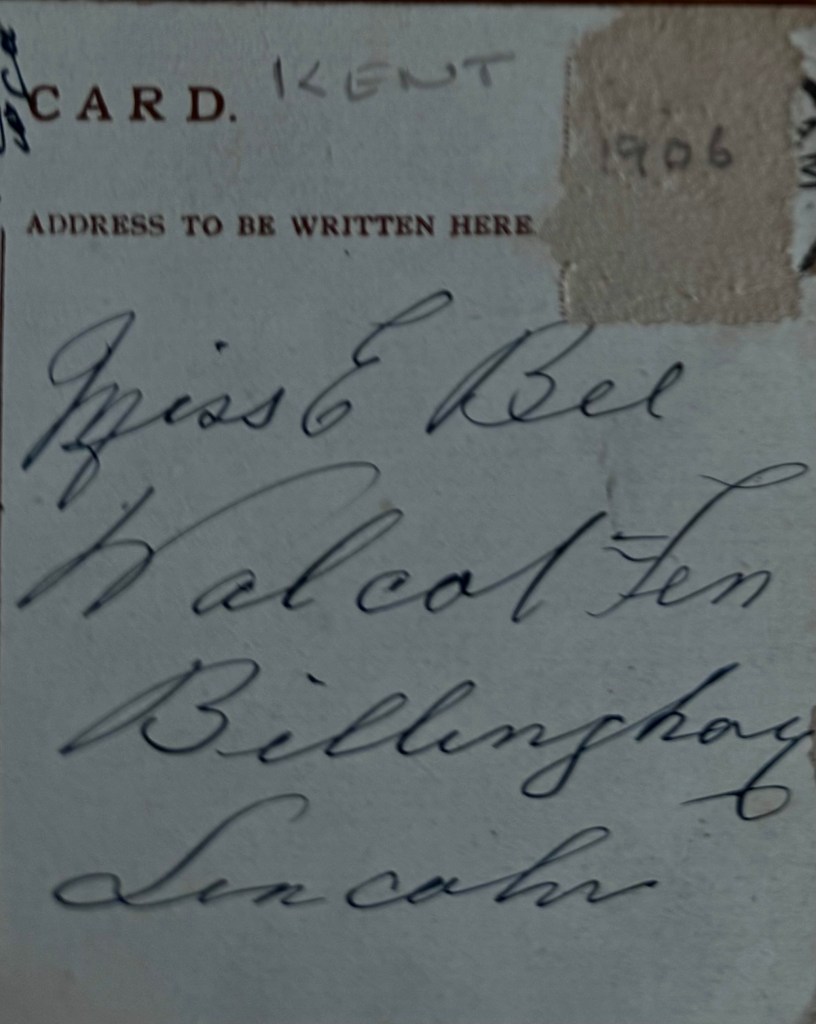 CARD. KENT
1906
ADDRESS TO BE WRITTEN HERE
Miss E Bel
Walcot Fen
Billinghay
Lincoln